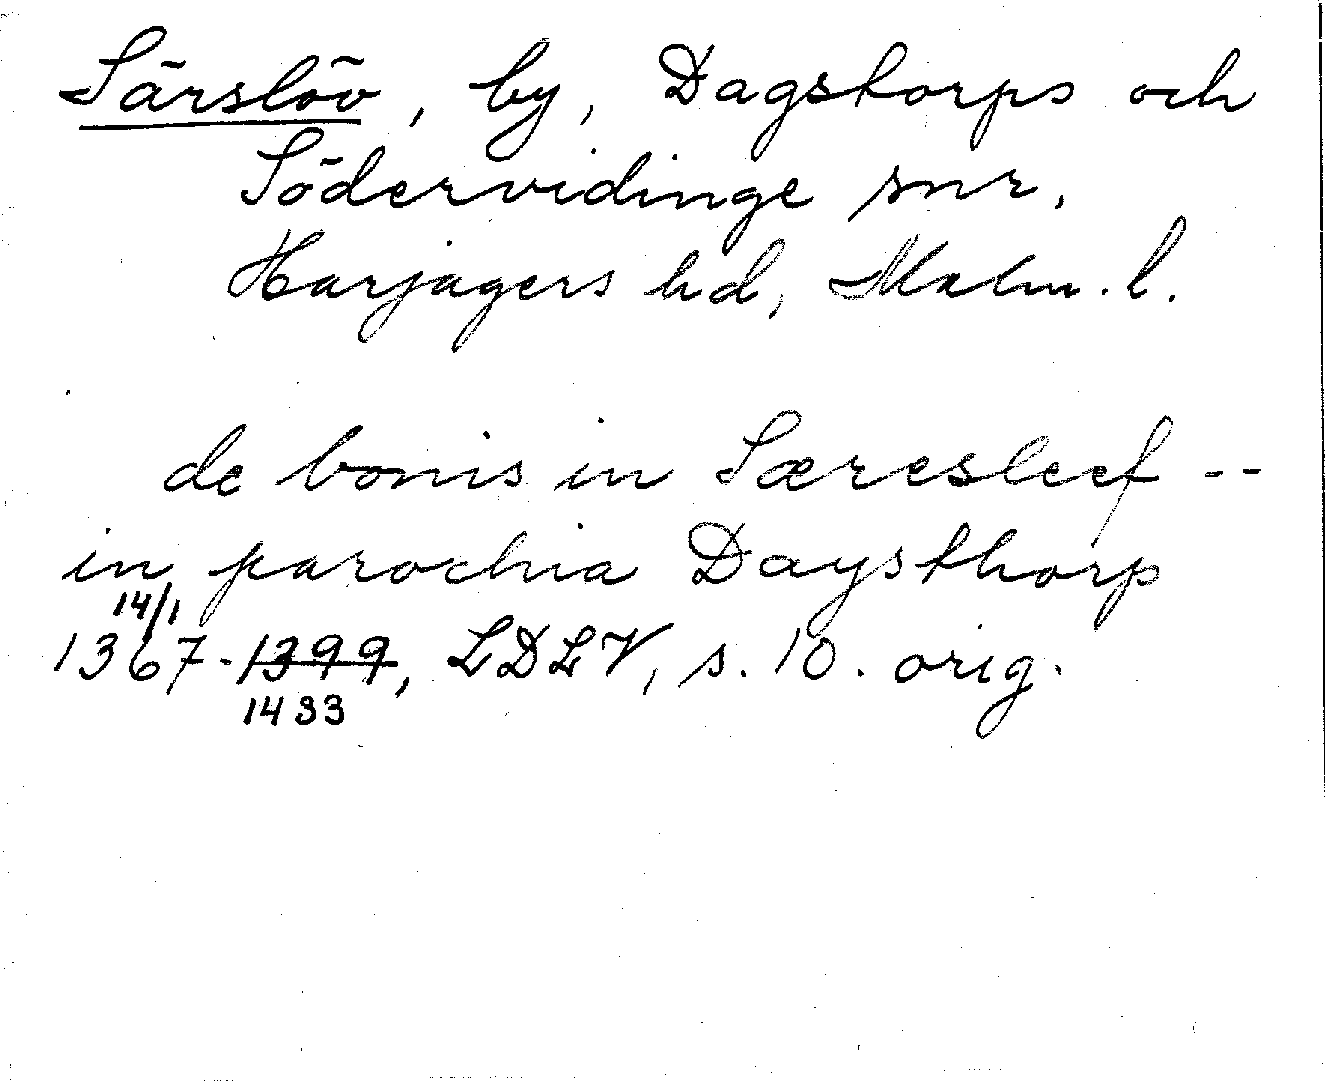 Särslöv, by, Dagstorps och
Södervidinge snr,
Harjagers hd, Malm. l.
de bonis in Særesleef --
in parochia Daysthorp
14/1
1367-1399, LDLV, s. 10. orig.
1433